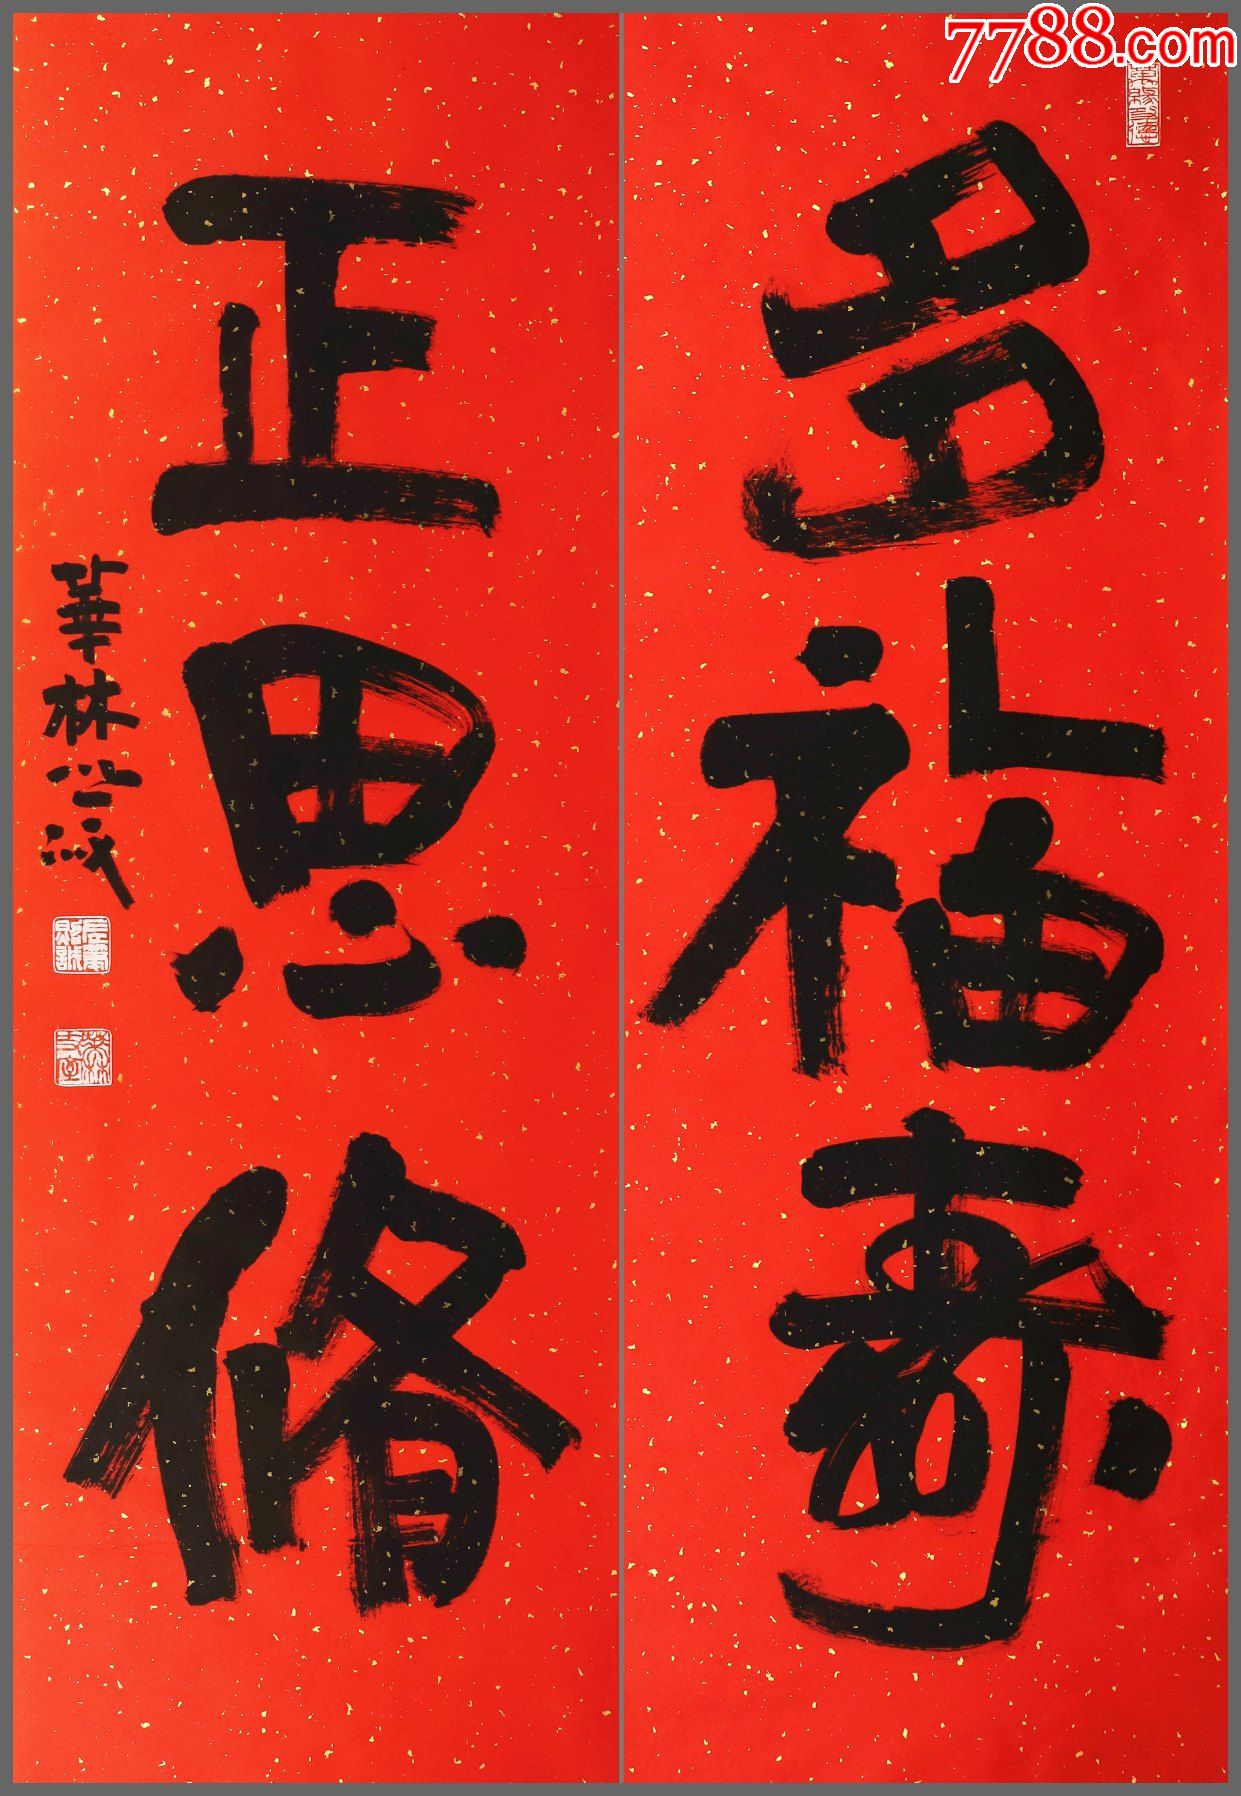 7788.com
多福壽
正思脩
華林